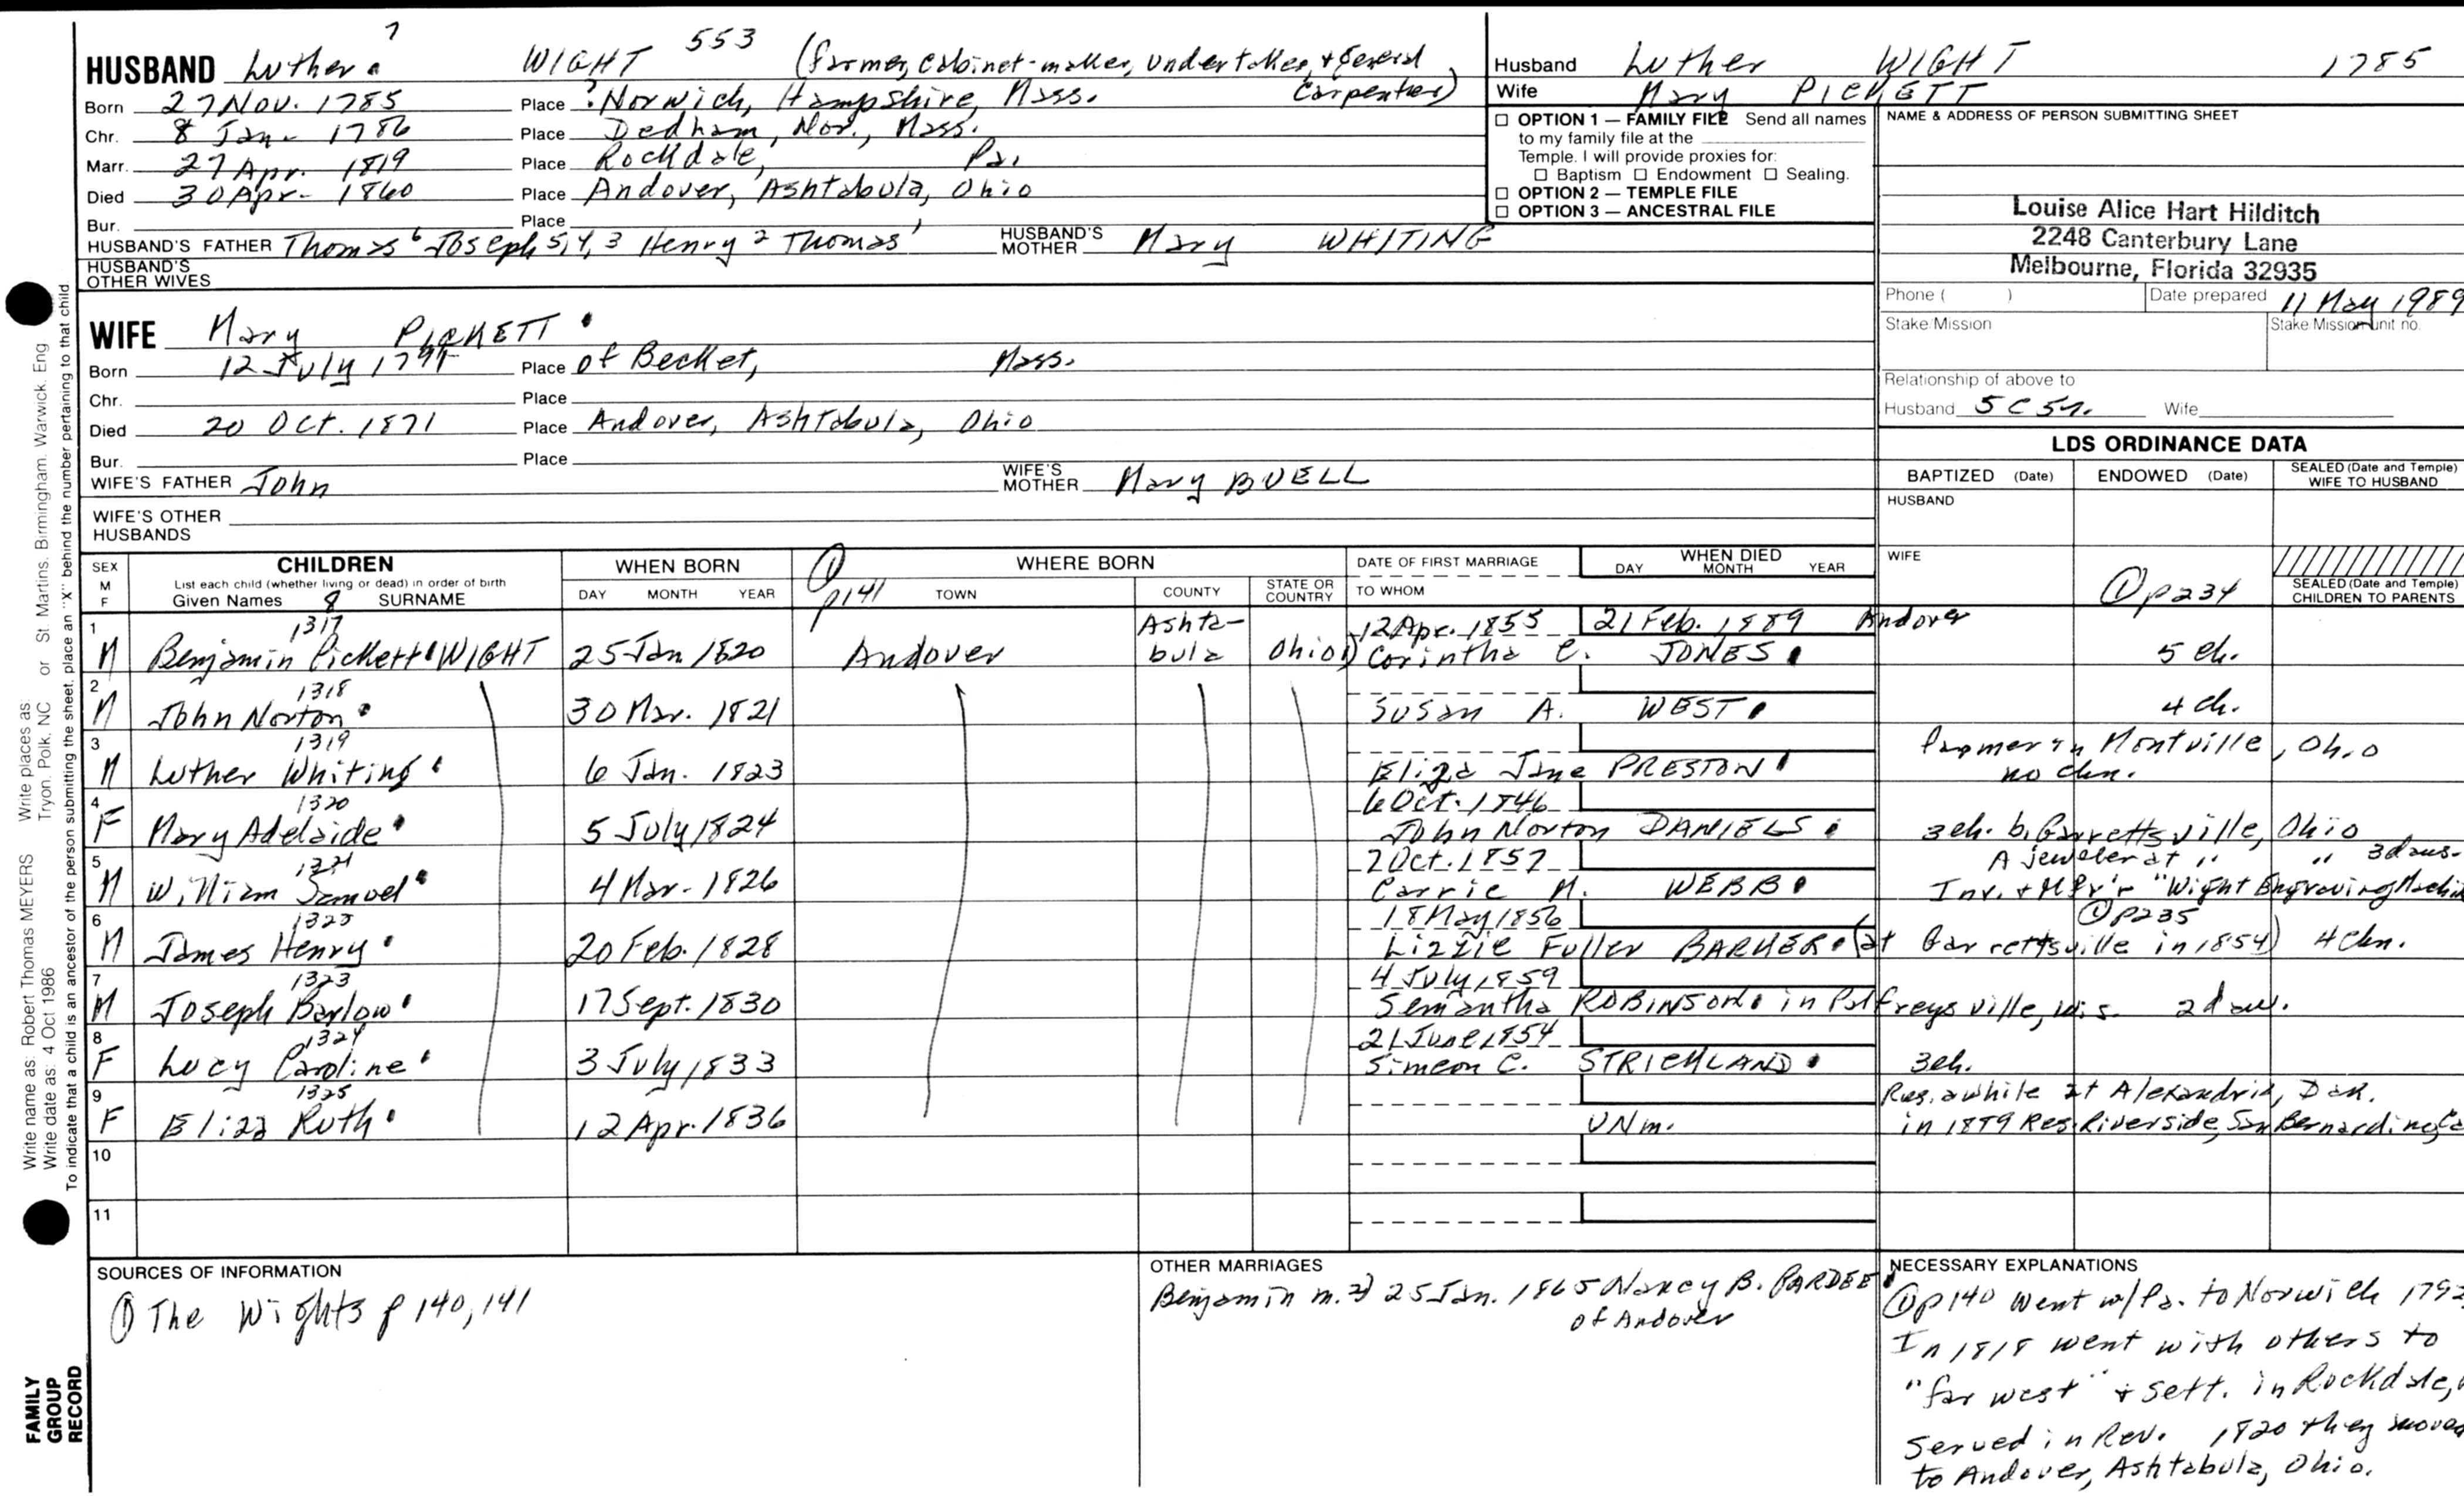 7
HUSBAND Luther. WIGHT 553 (farmer, cabinet-maker, undertaker, + general Carpenter)
Born 27 Nov. 1785 Place ?Norwich, Hampshire, Mass.
Chr. 8 Jan- 1786 Place Dedham, Nor., Mass.
Marr. 27 Apr. 1819 Place Rockdale, Pa.
Died 30 Apr- 1860 Place Andover, Ashtabula, Ohio
Bur. Place
HUSBAND'S FATHER Thomas 6 Joseph 5,4,3 Henry 2 Thomas 1 HUSBAND'S MOTHER Mary WHITING
HUSBAND'S OTHER WIVES
WIFE Mary PICKETT
Born 12 July Place of Becket, Mass.
Chr. Place
Died 20 Oct. 1871 Place Andover, Ashtabula, Ohio
Bur. Place
WIFE'S FATHER John WIFE'S MOTHER Mary BUELL
WIFE'S OTHER HUSBANDS
Husband Luther WIGHT 1785
Wife Mary PICKETT
☐ OPTION 1 — FAMILY FILE Send all names
to my family file at the
Temple. I will provide proxies for:
☐ Baptism ☐ Endowment ☐ Sealing.
☐ OPTION 2 — TEMPLE FILE
☐ OPTION 3 — ANCESTRAL FILE
NAME & ADDRESS OF PERSON SUBMITTING SHEET
Louise Alice Hart Hilditch
2248 Canterbury Lane
Melbourne, Florida 32935
Phone ( ) Date prepared 11 May 1989
Stake Mission Stake Mission unit no.
Relationship of above to
Husband 5C 5r. Wife
LDS ORDINANCE DATA
BAPTIZED (Date) ENDOWED (Date) SEALED (Date and Temple) WIFE TO HUSBAND
HUSBAND
WIFE ① p234 SEALED (Date and Temple) CHILDREN TO PARENTS
SEX M F CHILDREN WHEN BORN ① p141 WHERE BORN DATE OF FIRST MARRIAGE WHEN DIED
List each child (whether living or dead) in order of birth DAY MONTH YEAR
Given Names 8 SURNAME DAY MONTH YEAR TOWN COUNTY STATE OR COUNTRY TO WHOM
1 1317 Ashta- 12 Apr. 1855 21 Feb. 1889 Andover
M Benjamin Pickett WIGHT 25 Jan 1820 Andover bula Ohio 1) Corintha C. JONES 5 ch.
2 1318
M John Norton 30 Mar. 1821 Susan A. WEST 4 ch.
3 1319 Farmer in Montville, Ohio
M Luther Whiting 6 Jan. 1823 Eliza Jane PRESTON no chn.
4 1320 6 Oct. 1846
F Mary Adelaide 5 July 1824 John Norton DANIELS 3 ch. b. Garrettsville, Ohio
5 1321 2 Oct. 1857 A jeweler at " " 3 daus.
M William Samuel 4 Mar. 1826 Carrie M. WEBB Inv. + Mfr'r "Wight Engraving Machin
6 18 May 1856 ① p235
M James Henry 20 Feb. 1828 Lizzie Fuller BARKER (at Garrettsville in 1854) 4 chn.
7 1323 4 July 1859
M Joseph Barlow 17 Sept. 1830 Semantha ROBINSON in Palfreysville, Wis. 2 dau.
8 1324 21 June 1854
F Lucy Caroline 3 July 1833 Simeon C. STRICKLAND 3 ch.
9 1325 Res. awhile at Alexandria, Dak.
F Eliza Ruth 12 Apr. 1836 UNm. in 1889 Res. Riverside, San Bernardino, Ca
10
11
SOURCES OF INFORMATION
① The Wights p 140, 141
OTHER MARRIAGES
Benjamin m. 2) 25 Jan. 1865 Nancy B. PARDEE
of Andover
NECESSARY EXPLANATIONS
① p140 Went w/Pa. to Norwich 1792
In 1818 went with others to
"far west" + sett. in Rockdale,
Served in Rev. 1820 they moved
to Andover, Ashtabula, Ohio.
Write name as: Robert Thomas MEYERS Write places as St Martins, Birmingham, Warwick, Eng
Write date as: 4 Oct 1986 Tryon, Polk, NC or
To indicate that a child is an ancestor of the person submitting the sheet, place an "X" behind the number pertaining to that child.
FAMILY
GROUP
RECORD